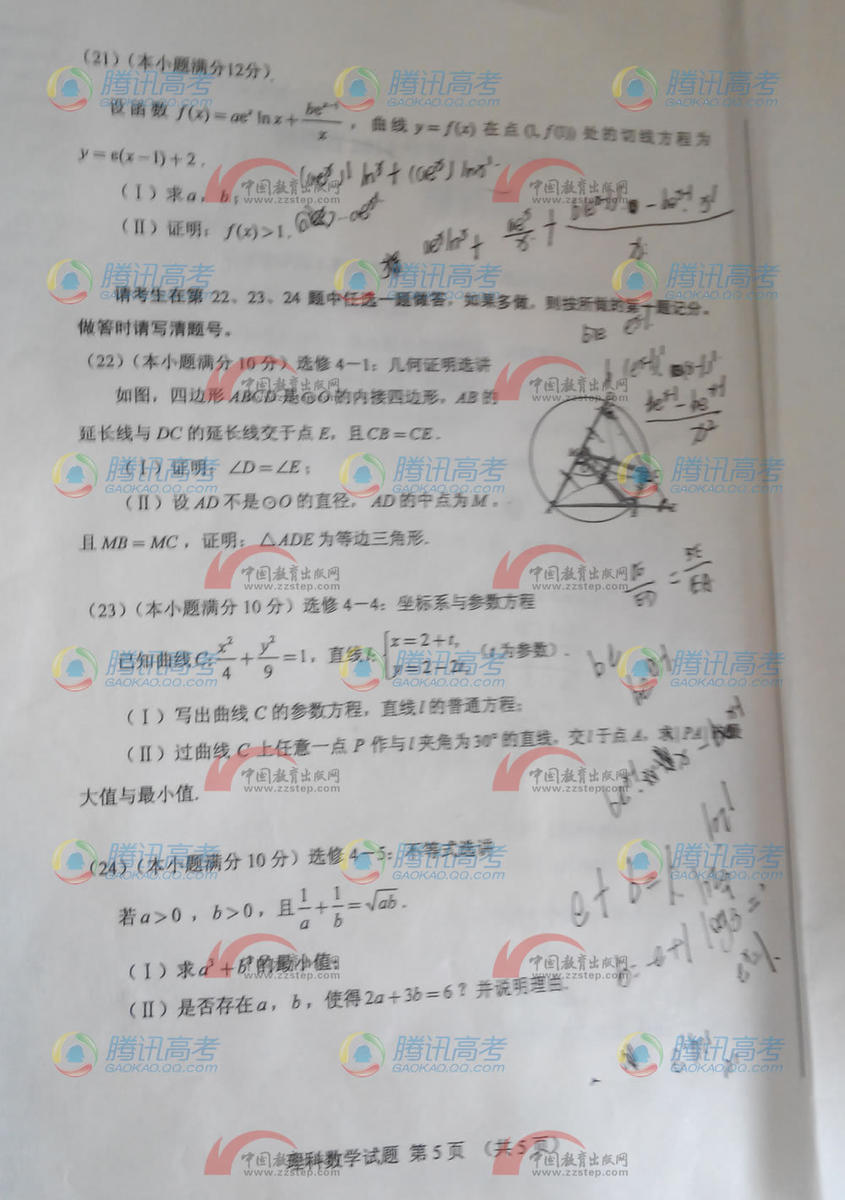 (21)(本小题满分12分)
设函数 f(x)=ae^x ln x+be^{x-1}/x，曲线 y=f(x) 在点 (1, f(1)) 处的切线方程为
y=e(x-1)+2.
(Ⅰ)求a，b；
(Ⅱ)证明：f(x)>1.
请考生在第 22、23、24 题中任选一题做答，如果多做，则按所做的第一题记分。
做答时请写清题号。
(22)(本小题满分10分)选修4-1：几何证明选讲
如图，四边形ABCD是⊙O的内接四边形，AB的
延长线与DC的延长线交于点E，且CB=CE.
(Ⅰ)证明：∠D=∠E；
(Ⅱ)设AD不是⊙O的直径，AD的中点为M，
且MB=MC，证明：△ADE为等边三角形.
(23)(本小题满分10分)选修4-4：坐标系与参数方程
已知曲线C:x²/4+y²/9=1，直线l:{x=2+t, y=2-2t, (t为参数).
(Ⅰ)写出曲线C的参数方程，直线l的普通方程；
(Ⅱ)过曲线C上任意一点P作与l夹角为30°的直线，交l于点A，求|PA|的最
大值与最小值.
(24)(本小题满分10分)选修4-5：不等式选讲
若a>0，b>0，且1/a+1/b=√ab.
(Ⅰ)求a³+b³的最小值；
(Ⅱ)是否存在a，b，使得2a+3b=6？并说明理由.
理科数学试题 第5页 (共5页)
腾讯高考
GAOKAO.QQ.COM
中国教育出版网
www.zzstep.com